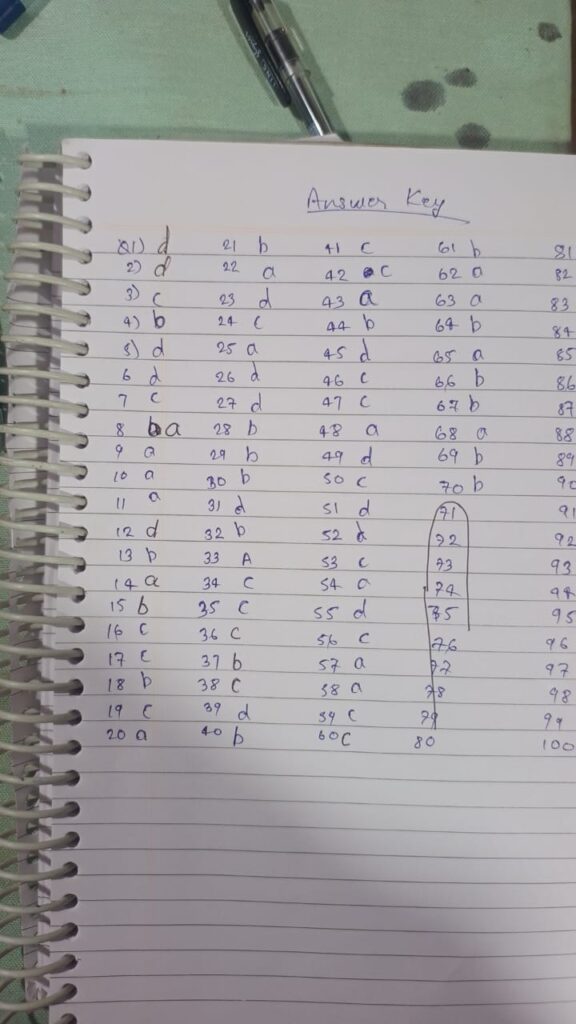 Answer Key
Q1) d 21 b 41 c 61 b 81
2) d 22 a 42 c 62 a 82
3) c 23 d 43 a 63 a 83
4) b 24 c 44 b 64 b 84
5) d 25 a 45 d 65 a 85
6 d 26 d 46 c 66 b 86
7 c 27 d 47 c 67 b 87
8 a 28 b 48 a 68 a 88
9 a 29 b 49 d 69 b 89
10 a 30 b 50 c 70 b 90
11 a 31 d 51 d 71 91
12 d 32 b 52 72 92
13 b 33 A 53 c 73 93
14 a 34 c 54 a 74 94
15 b 35 c 55 d 75 95
16 c 36 c 56 c 76 96
17 c 37 b 57 a 77 97
18 b 38 c 58 a 78 98
19 c 39 d 59 c 79 99
20 a 40 b 60 c 80 100